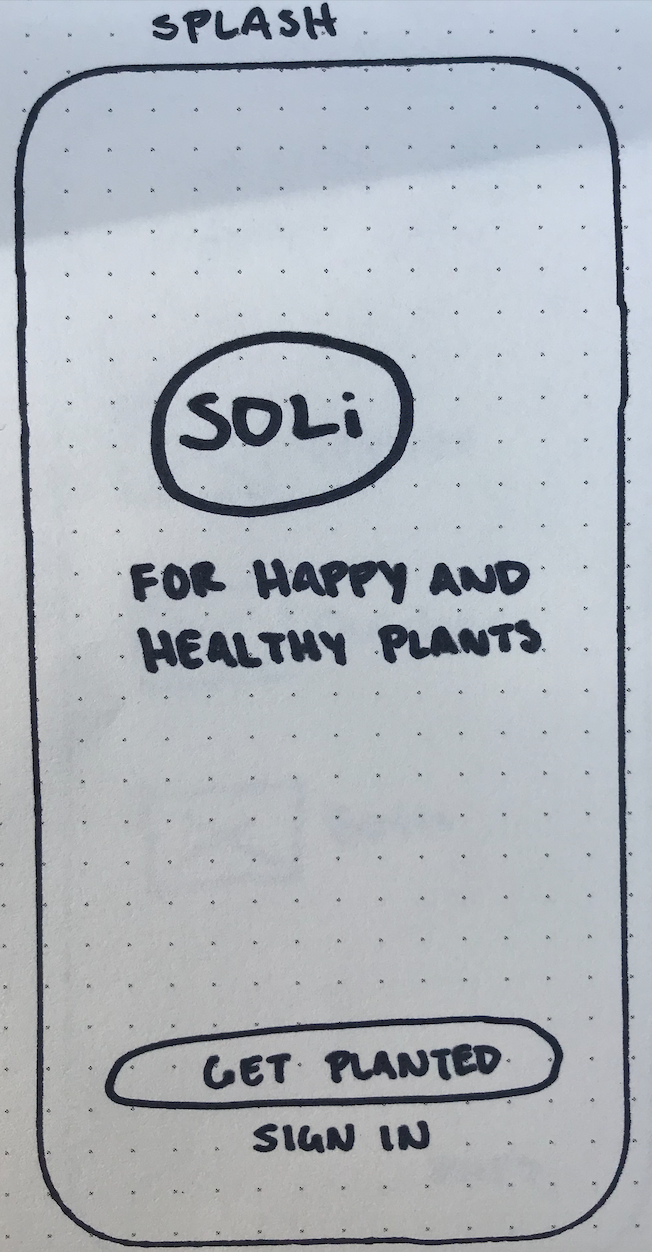 SPLASH
SOLi
FOR HAPPY AND
HEALTHY PLANTS
GET PLANTED
SIGN IN